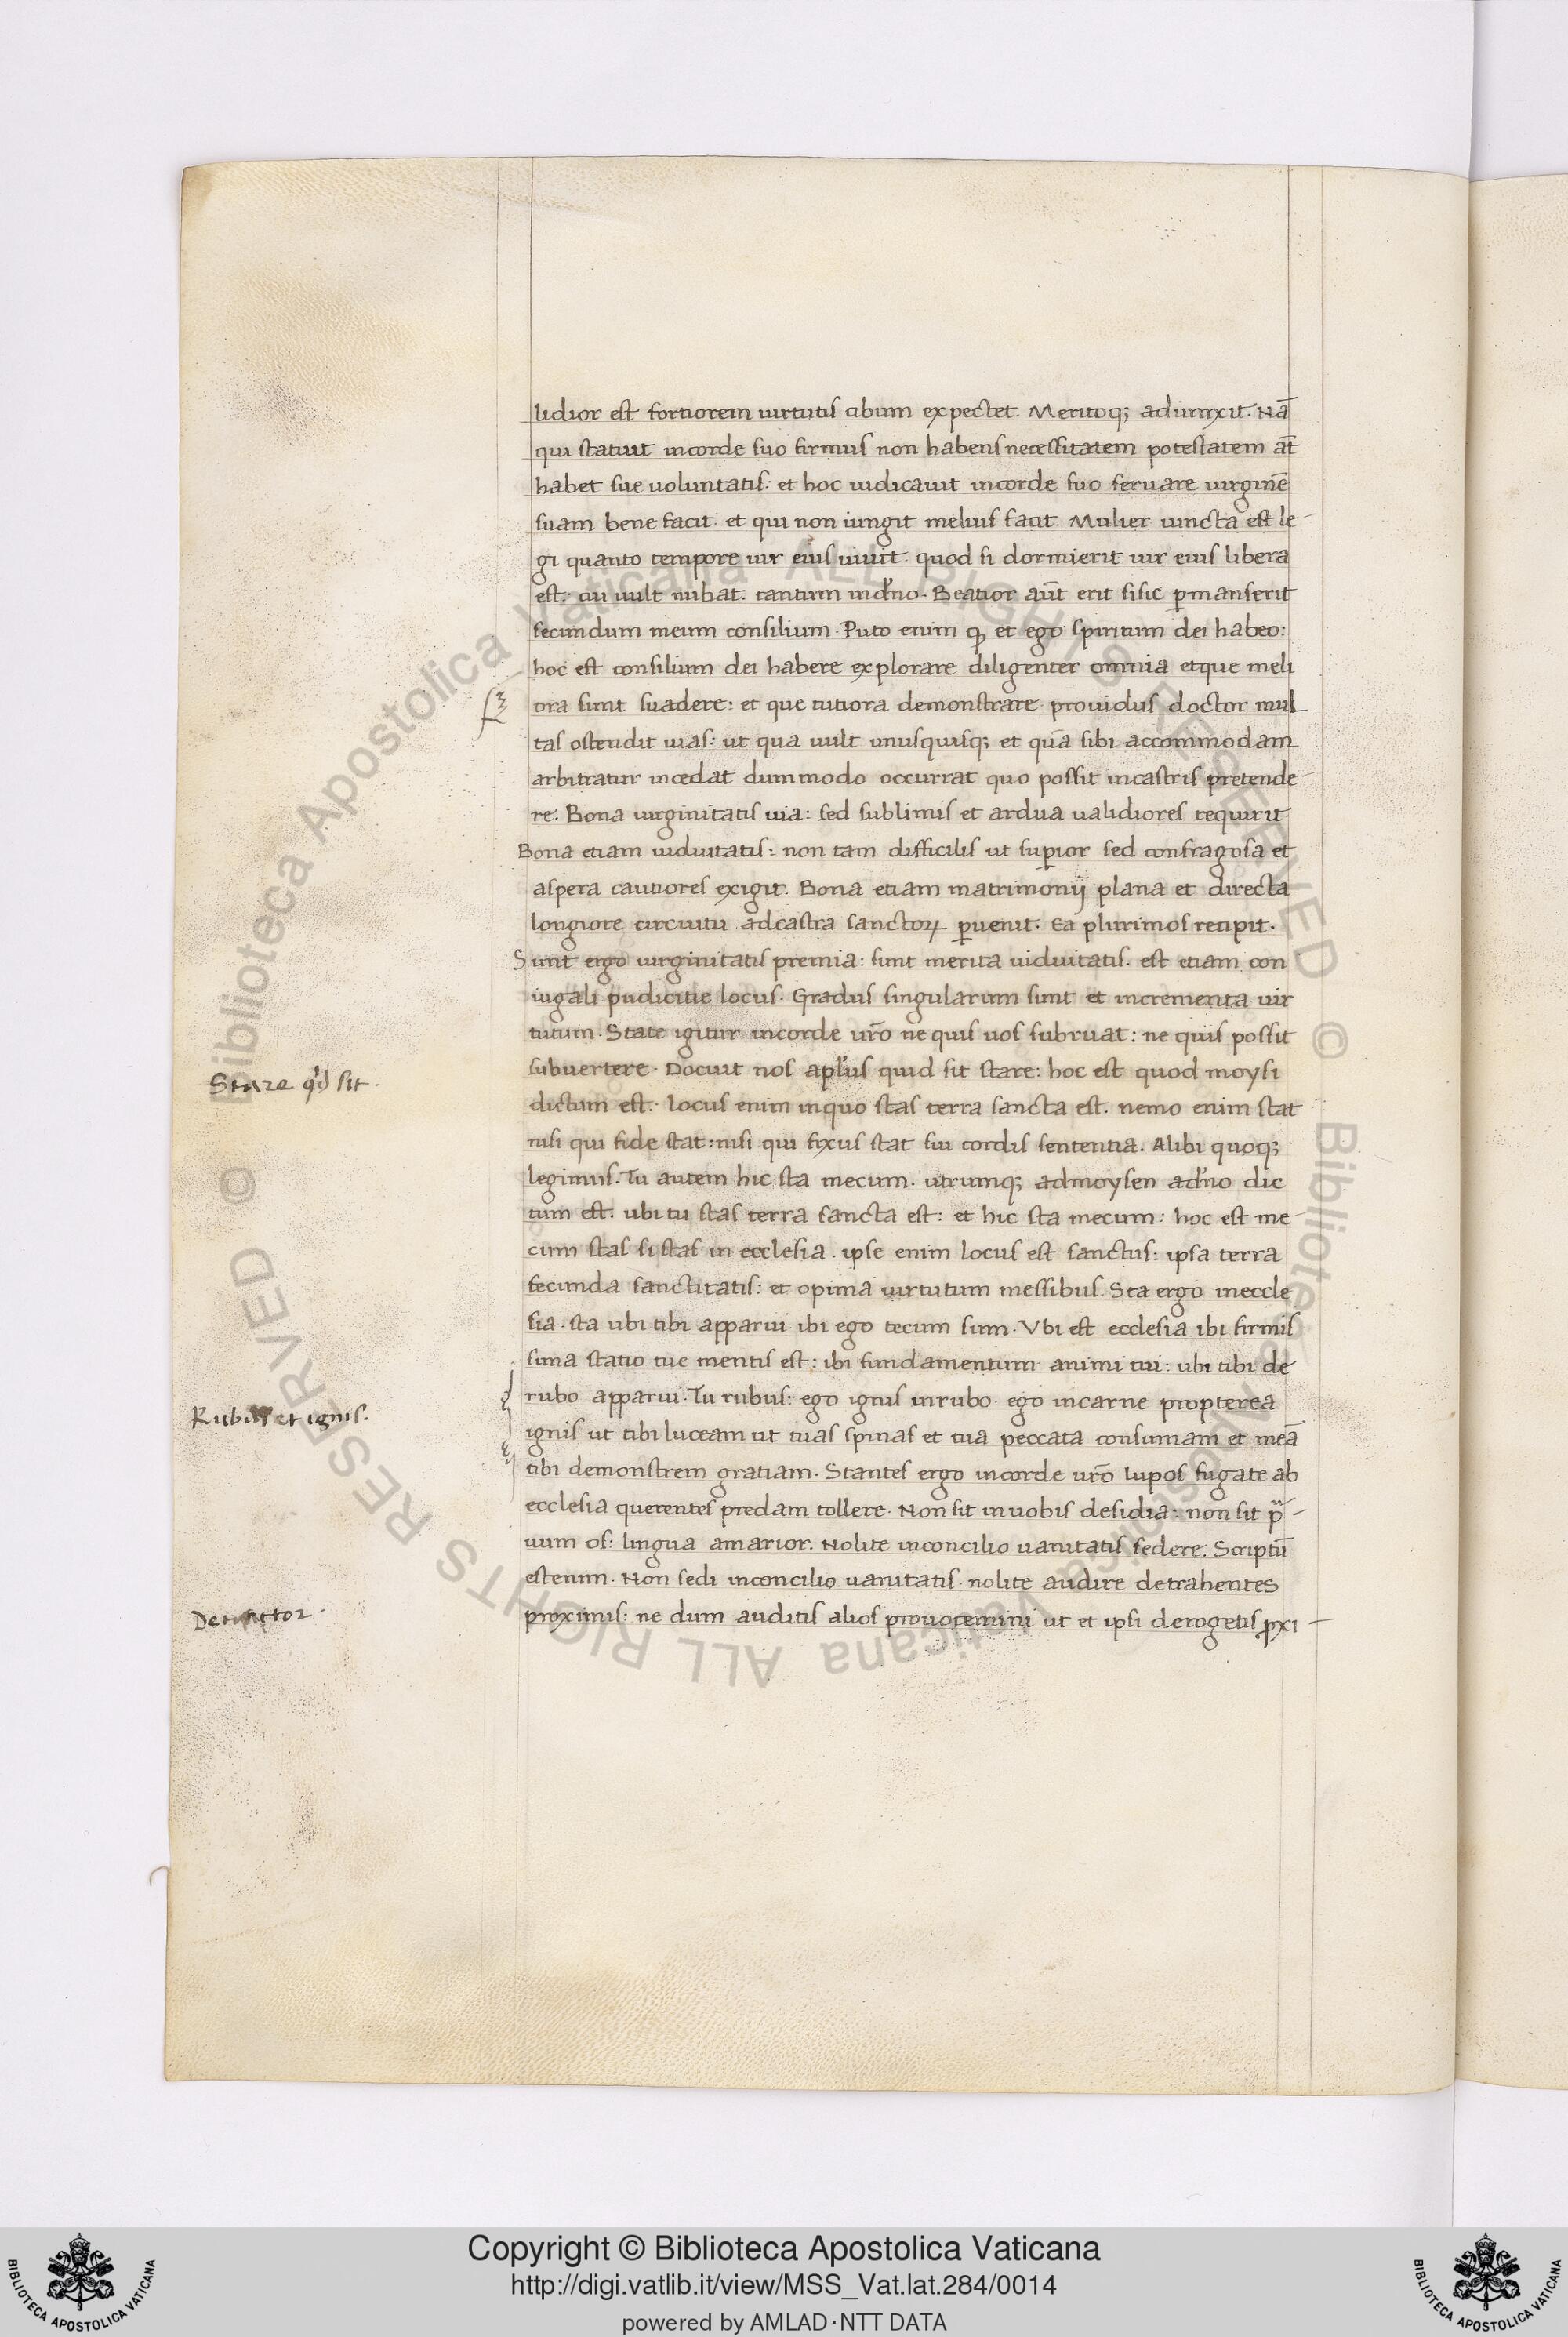 lidior est fortiorem uirtutis cibum expectet. Meritoq; adiunxit. Nā
qui statuit incorde suo firmus non habens necessitatem potestatem aūt
habet sue uoluntatis: et hoc iudicauit incorde suo seruare uirginē
suam bene facit. et qui non iungit melius facit. Mulier iuncta est le-
gi quanto tempore uir eius uiuit. quod si dormierit uir eius libera
est. cui uult nubat. tantum indño. Beatior aūt erit sisic ꝑmanserit
secundum meum consilium. Puto enim ꝙ et ego spiritum dei habeo:
hoc est consilium dei habere explorare diligenter omnia etque meli
ora sunt suadere: et que tutiora demonstrare prouidus doctor mul
tas ostendit uias: ut qua uult unusquisq; et quā sibi accommodam
arbitratur incedat dummodo occurrat quo possit incastris pretende-
re. Bona uirginitatis uia: sed sublimis et ardua ualidiores requirit.
Bona etiam uiduitatis: non tam difficilis ut suꝑior sed confragosa et
aspera cautiores exigit. Bona etiam matrimonij plana et directa
longiore circuitu adcastra sanctoꝝ ꝑuenit. Ea plurimos recipit.
Sunt ergo uirginitatis premia: sunt merita uiduitatis. est etiam con
iugali pudicitie locus. Gradus singularum sunt et incrementa uir
tutum. State igitur incorde ur̄o ne quis uos subruat: ne quis possit
subuertere. Docuit nos apl'us quid sit stare: hoc est quod moysi
dictum est. locus enim inquo stas terra sancta est. nemo enim stat
nisi qui fide stat: nisi qui fixus stat sui cordis sententia. Alibi quoq;
legimus. Tu autem hic sta mecum. utrumq; admoysen adño dic
tum est. ubi tu stas terra sancta est: et hic sta mecum: hoc est me-
cum stas si stas in ecclesia. ipse enim locus est sanctus: ipsa terra
fecunda sanctitatis: et opima uirtutum messibus. Sta ergo ineccle
sia. sta ubi tibi apparui ibi ego tecum sum. Vbi est ecclesia ibi firmis
sima statio tue mentis est: ibi fundamentum animi tui: ubi tibi de
rubo apparui. Tu rubus: ego ignis inrubo. ego incarne propterea
ignis ut tibi luceam ut tuas spinas et tua peccata consumam et meā
tibi demonstrem gratiam. Stantes ergo incorde ur̄o lupos fugate ab
ecclesia querentes predam tollere. Non sit inuobis desidia: non sit pͣ-
uum os: lingua amarior. Nolite inconcilio uanitatis sedere. Scriptū
estenim. Non sedi inconcilio uanitatis. nolite audire detrahentes
proximis: ne dum auditis alios prouocemini ut et ipsi derogetis ꝓxi-
Stare qd sit.
Rubus et ignis.
Detractor.
Copyright © Biblioteca Apostolica Vaticana
http://digi.vatlib.it/view/MSS_Vat.lat.284/0014
powered by AMLAD·NTT DATA
BIBLIOTECA APOSTOLICA VATICANA
BIBLIOTECA APOSTOLICA VATICANA
© Biblioteca Apostolica Vaticana ALL RIGHTS RESERVED © Biblioteca Apostolica Vaticana ALL RIGHTS RESERVED